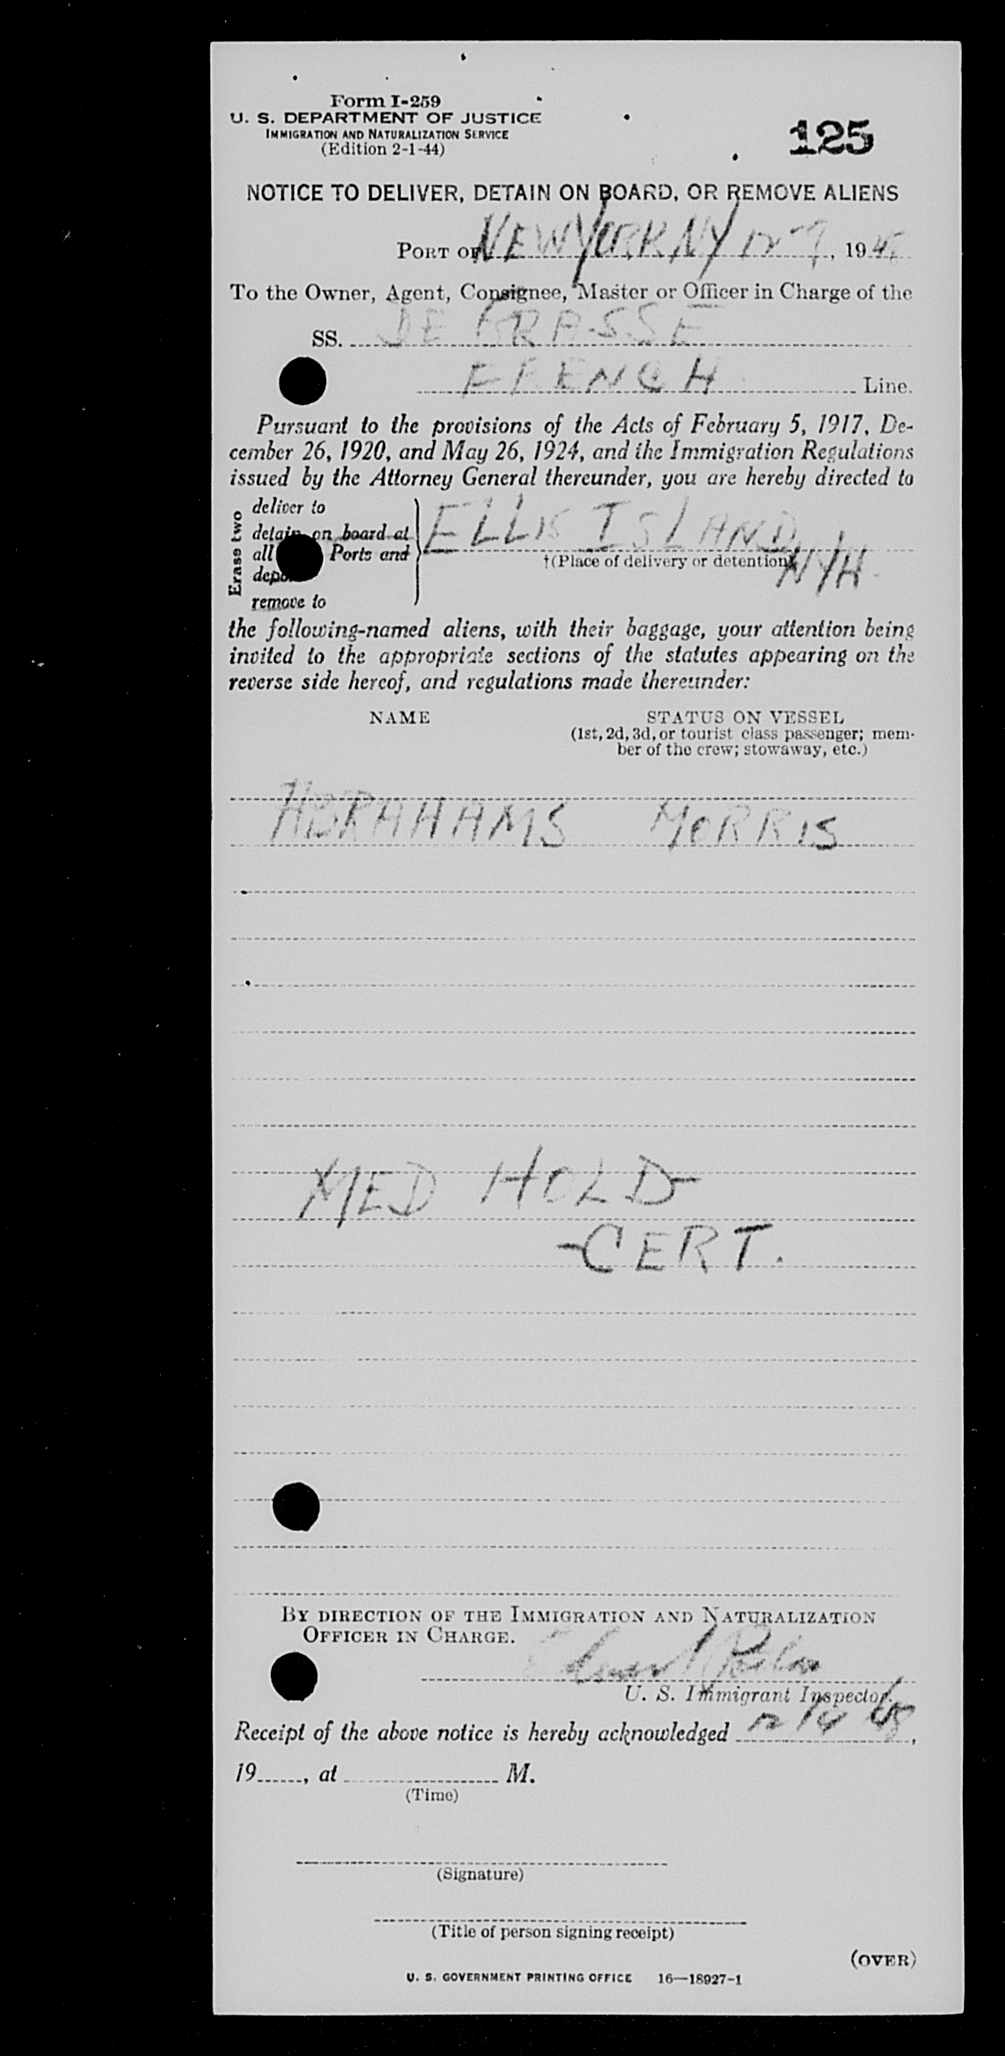 Form I-259
U. S. DEPARTMENT OF JUSTICE
IMMIGRATION AND NATURALIZATION SERVICE
(Edition 2-1-44)
125
NOTICE TO DELIVER, DETAIN ON BOARD, OR REMOVE ALIENS
PORT OF NEW YORK NY 12-7, 1948
To the Owner, Agent, Consignee, Master or Officer in Charge of the
SS. DE GRASSE
FRENCH Line.
Pursuant to the provisions of the Acts of February 5, 1917, De-
cember 26, 1920, and May 26, 1924, and the Immigration Regulations
issued by the Attorney General thereunder, you are hereby directed to
Erase two
deliver to
detain on board at
all Ports and
remove to
ELLIS ISLAND
†(Place of delivery or detention)
NYH
the following-named aliens, with their baggage, your attention being
invited to the appropriate sections of the statutes appearing on the
reverse side hereof, and regulations made thereunder:
NAME STATUS ON VESSEL
(1st, 2d, 3d, or tourist class passenger; mem-
ber of the crew; stowaway, etc.)
ABRAHAMS MORRIS
MED HOLD
-CERT.
BY DIRECTION OF THE IMMIGRATION AND NATURALIZATION
OFFICER IN CHARGE.
U. S. Immigrant Inspector.
Receipt of the above notice is hereby acknowledged 12 48,
19......, at M.
(Time)
(Signature)
(Title of person signing receipt)
(OVER)
U. S. GOVERNMENT PRINTING OFFICE 16—18927-1